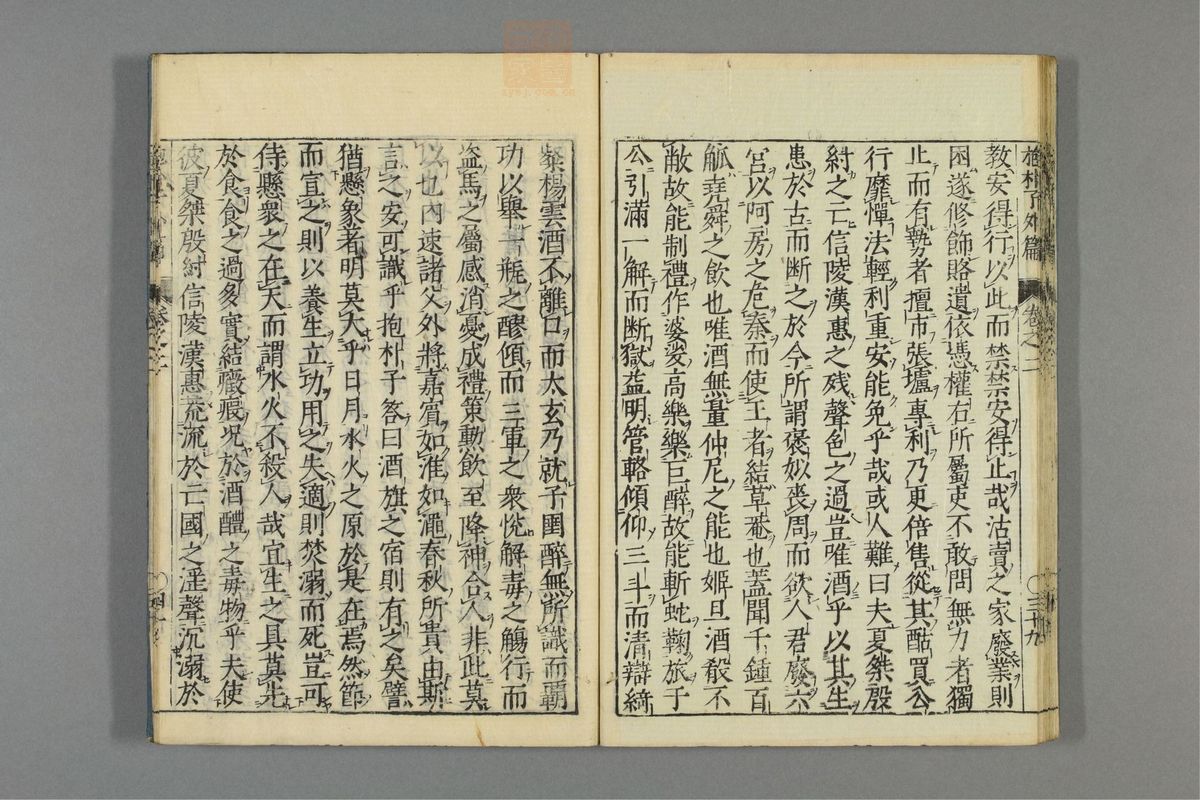 抱朴子外篇 卷之二 〇三十九
教安得行以此而禁禁安得止哉沽賣之家廢業則
困遂修飾賂遺依憑權右所屬吏不敢問無力者獨
止而有勢者擅市張壚專利乃更倍售從其酤買公
行靡憚法輕利重安能免乎哉或人難曰夫夏桀殷
紂之亡信陵漢惠之殘聲色之過豈唯酒乎以其生
患於古而断之於今所謂褒姒喪周而欲人君廢六
宮以阿房之危秦而使王者結草菴也蓋聞千鍾百
觚堯舜之飲也唯酒無量仲尼之能也姬旦酒殽不
徹故能制禮作樂漢高婆娑巨醉故能斬蛇鞠旅于
公引滿一斛而断獄益明管輅傾仰三斗而清辯綺
粲楊雲酒不離口而太玄乃就子圉醉無所識而霸
功以舉一瓶之醪傾而三軍之衆悅解毒之觴行而
盗馬之屬感消憂成禮策勲飲至降神合人非此莫
以也內速諸父外將嘉賓如淮如澠春秋所貴由斯
言之安可識乎抱朴子答曰酒旗之宿則有之矣譬
猶懸象著明莫大乎日月水火之原於是在焉然節
而宜之則以養生立功用之失適則焚溺而死豈可
恃懸象之在天而謂水火不殺人哉宜生之具莫先
於食食之過多實結癥瘕况於酒醴之毒物乎夫使
彼夏桀殷紂信陵漢惠荒流於亡國之淫聲沉溺於